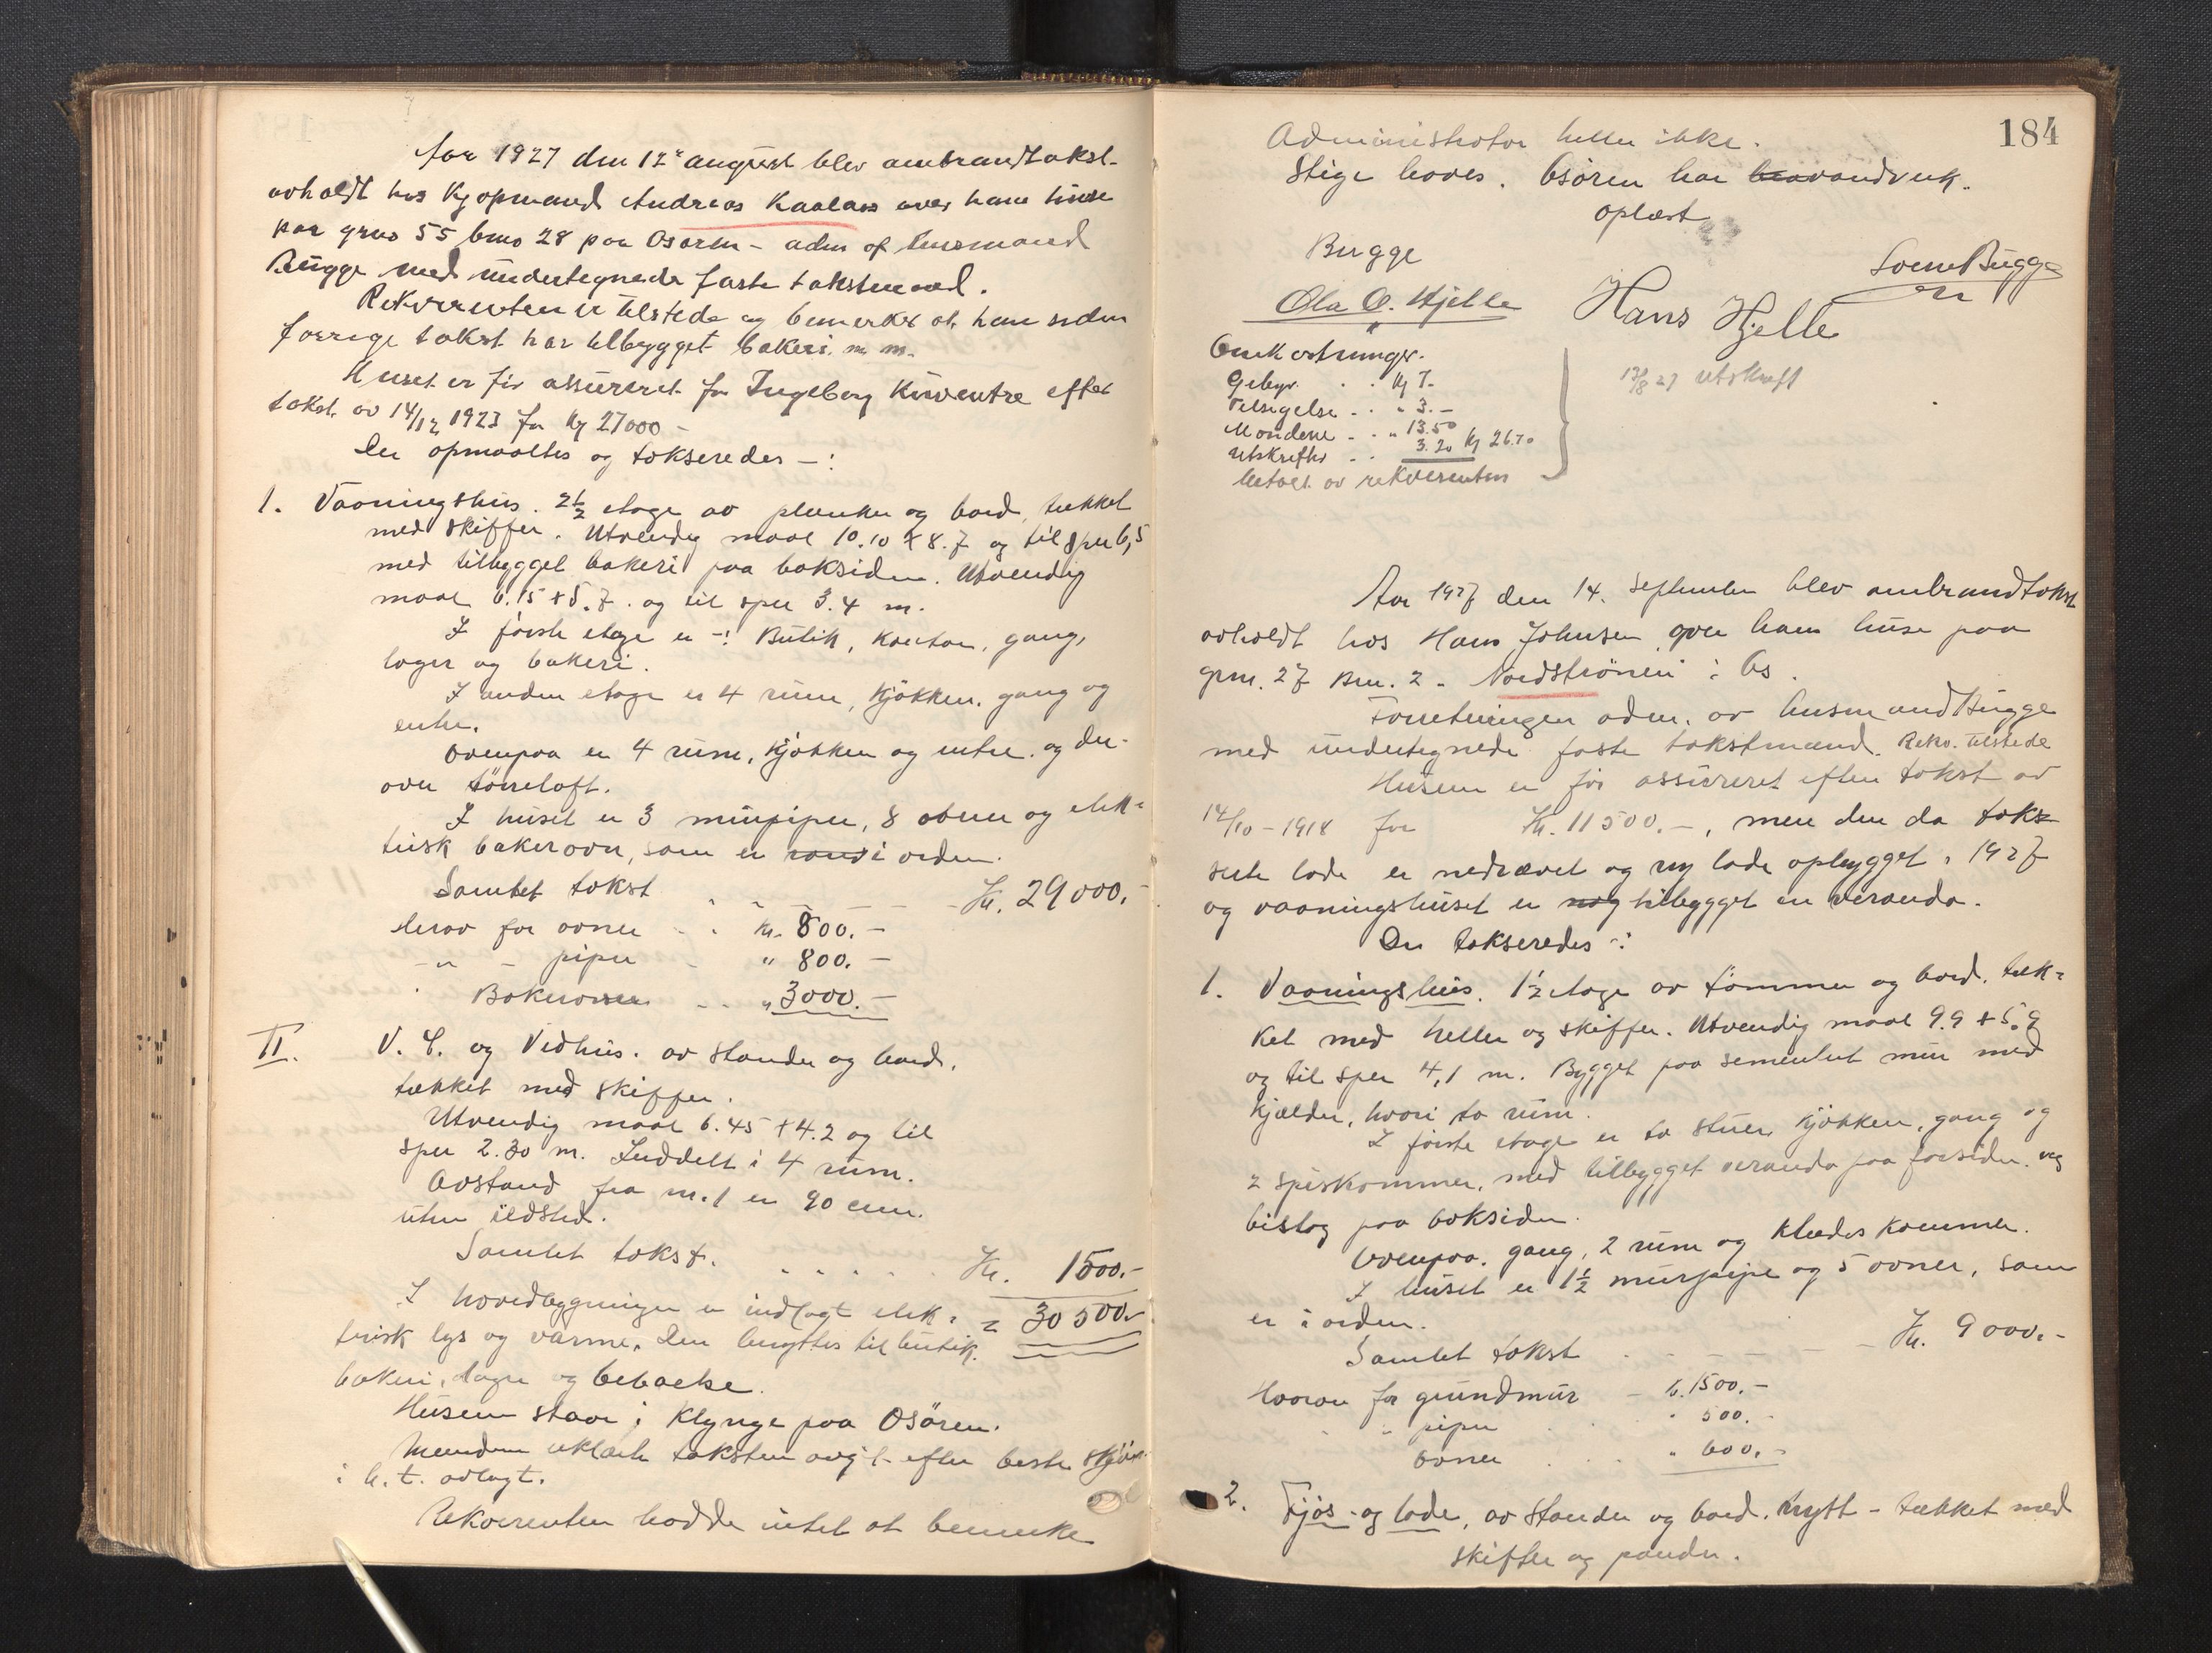 Aar 1927 den 12te august blev ombrandtakst-
avholdt hos Kjøpmand Andreas Kaalaas over hans huse
paa grno 55 brno 28 paa Osøren - adm af lensmand
Bugge med undertegnede faste takstmænd.
Rekvirenten er tilstede og bemerket at han siden
forrige takst har tilbygget bakeri m. m.
Huset er før assureret for Ingeborg efter
takst av 14/12 1923 for Kr 27000 -
Der opmaaltes og takseredes -:
1. Vaaningshus. 2½ etage av planker og bord, tækket
med skiffer. Utvendig maal 10.10 x 8.7 og til sper 6,5
med tilbygget bakeri paa baksiden. Utvendig
maal 6.15 x 5.7. og til sper 3.4 m.
I første etage er -: Butik, kontor, gang,
lager og bakeri.
I anden etage er 4 rum, kjøkken, gang og
entre.
Ovenpaa er 4 rum, kjøkken og entre. og der-
over tørreloft.
I huset er 3 murpiper, 8 ovner og elek-
trisk bakerovn, som er i orden.
Samlet takst - - - - Kr. 29000.-
derav for ovner - - kr. 800.-
-"- piper - " 800.-
" Bakerovnen - - " 3000.-
II. V. C. og Vedhus. av stander og bord,
tækket med skiffer.
Utvendig maal 6.45 x 4.2 og til
sper 2.30 m. Inddelt i 4 rum.
Avstand fra nr. 1 er 90 cm.
uten ildsted.
Samlet takst. . . . . . Kr. 1500.-
I hovedbygningen er indlagt elek- = 30500.-
trisk lys og varme. Den benyttes til butik,
bakeri, lager og beboelse.
Husene staar i klynge paa Osøren.
Mændene erklærte taksten avgit efter beste skjøn
i h. t. avlagt.
Rekvirenten hadde intet at bemerke
184
Administrator heller ikke.
Stige haves. Osøren har vandverk.
Oplæst
Bugge
Sverre Bugge
Ola O. Hjelle
Hans Hjelle
Omkostninger.
Gebyr . . Kr 7.-
Tilsigelse . . " 3.-
Mændene . . " 13.50
Utskrifter . . 3.20 Kr 26.70
betalt av rekvirenten
13/8 27 utskrift
Aar 1927 den 14. September blev ombrandtakst
avholdt hos Hans Johnsen over hans huse paa
grn. 27 Brn. 2 - Nordstrønen i Os.
Forretningen adm. av lensmand Bugge
med undertegnede faste takstmænd. Rekv. tilstede
Husene er før assureret efter takst av
14/10 - 1918 for Kr. 11500.-, men den da tak-
serte lade er nedrevet og ny lade opbygget i 1927
og vaaningshuset er tilbygget en veranda.
Der takseredes -:
1. Vaaningshus. 1½ etage av tømmer og bord. tæk-
ket med heller og skiffer. Utvendig maal 9.9 x 5.9
og til sper 4,1 m. Bygget paa sementert mur med
kjælder, hvori to rum.
I første etage er to stuer, kjøkken, gang og
2 spiskammer, med tilbygget veranda paa forsiden. og
bislag paa baksiden.
Ovenpaa. gang, 2 rum og klædeskammer.
I huset er 1½ murpipe og 5 ovner, som
er i orden.
Samlet takst - - - - Kr. 9000.-
Hvorav for grundmur - kr. 1500.-
" - piper . " 500.-
ovner . . . " 600.-
2. Fjøs - og lade, av stander og bord. nytt - tækket med
skiffer og pander.